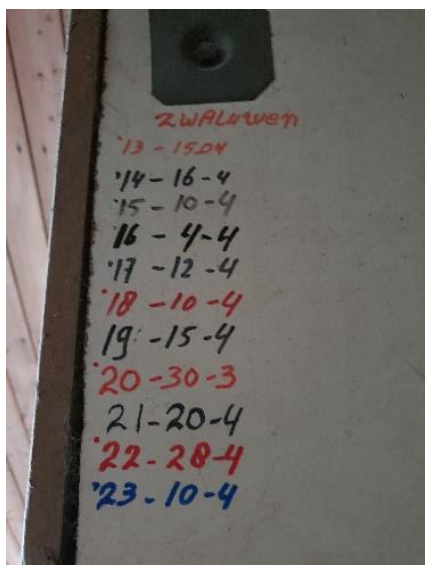 zwaluwen
'13 - 15.04
'14 - 16 - 4
'15 - 10 - 4
16 - 4 - 4
'17 - 12 - 4
'18 - 10 - 4
19 - 15 - 4
'20 - 30 - 3
21 - 20 - 4
'22 - 28 - 4
'23 - 10 - 4